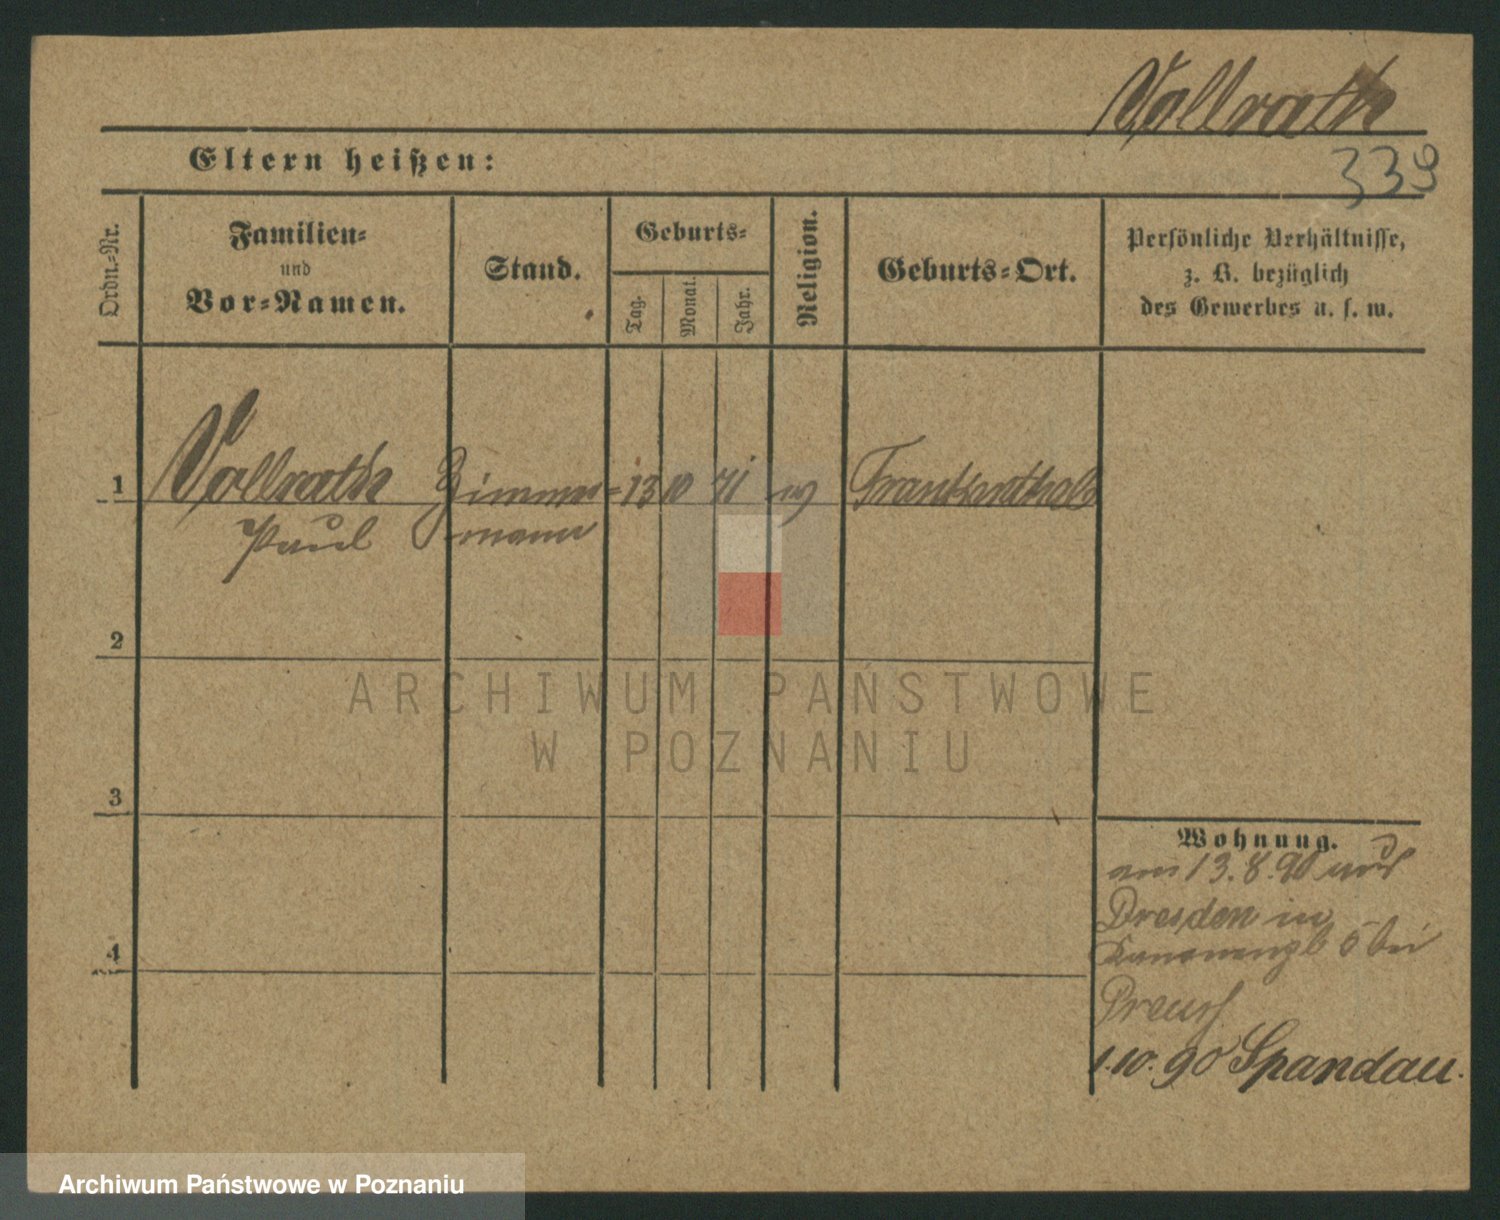 Vollrath
Eltern heißen:
339
Ordn.-Nr.
Familien-
und
Vor-Namen.
Stand.
Geburts-
Tag.
Monat.
Jahr.
Religion.
Geburts-Ort.
Persönliche Verhältnisse,
z. B. bezüglich
des Gewerbes u. s. w.
1
Vollrath Zimmer- 13 10 71 Frankenthal
Paul mann
2
ARCHIWUM PAŃSTWOWE
W POZNANIU
3
Wohnung.
am 13.8.90 aus
Dresden in
5 bei
Preuss
4
1.10.90 Spandau.
Archiwum Państwowe w Poznaniu